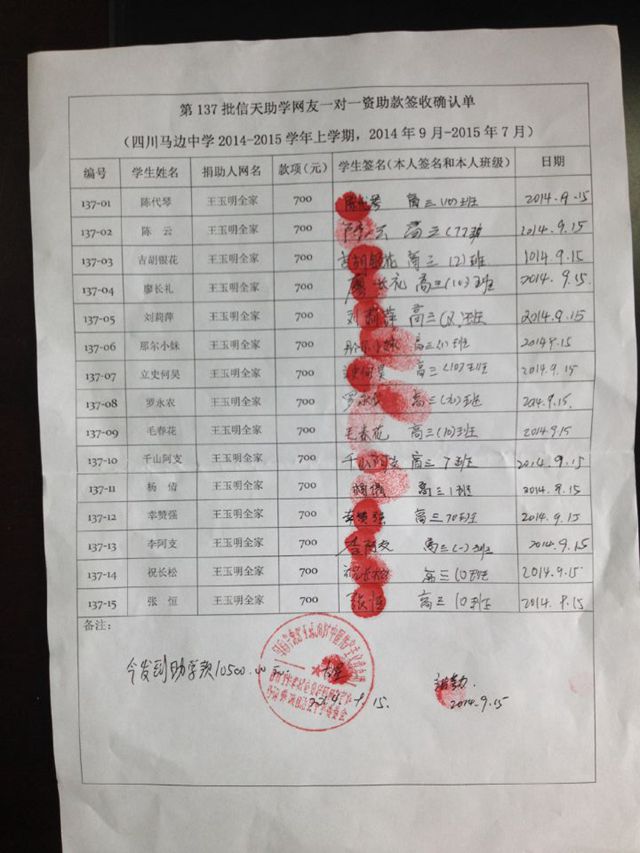 第 137 批信天助学网友一对一资助款签收确认单
（四川马边中学 2014-2015 学年上学期，2014 年 9 月-2015 年 7 月）
编号 学生姓名 捐助人网名 款项(元) 学生签名(本人签名和本人班级) 日期
137-01 陈代琴 王玉明全家 700 陈代琴 高三(10)班 2014.9.15
137-02 陈 云 王玉明全家 700 陈云 高三 2014.9.15
137-03 吉胡银花 王玉明全家 700 吉胡银花 高三(2)班 2014.9.15
137-04 廖长礼 王玉明全家 700 廖长礼 高三(10)班 2014.9.15
137-05 刘莉萍 王玉明全家 700 刘莉萍 高三(2)班 2014.9.15
137-06 那尔小妹 王玉明全家 700 那尔小妹 高三(1)班 2014.9.15
137-07 立史何昊 王玉明全家 700 高三(10)班 2014.9.15
137-08 罗永农 王玉明全家 700 罗永农 高三 班 2014.9.15.
137-09 毛春花 王玉明全家 700 毛春花 高三(10)班 2014.9.15
137-10 千山阿支 王玉明全家 700 千山阿支 高三 7班 2014.9.15
137-11 杨 倩 王玉明全家 700 杨倩 高三 1班 2014.9.15
137-12 幸赞强 王玉明全家 700 幸赞强 高三10班 2014.9.15
137-13 李阿支 王玉明全家 700 李阿支 高三(一)班 2014.9.15
137-14 祝长松 王玉明全家 700 祝长松 高三10班 2014.9.15
137-15 张 恒 王玉明全家 700 张恒 高三10班 2014.9.15
备注：
今发到助学款10500.00
2014.9.15.
2014.9.15